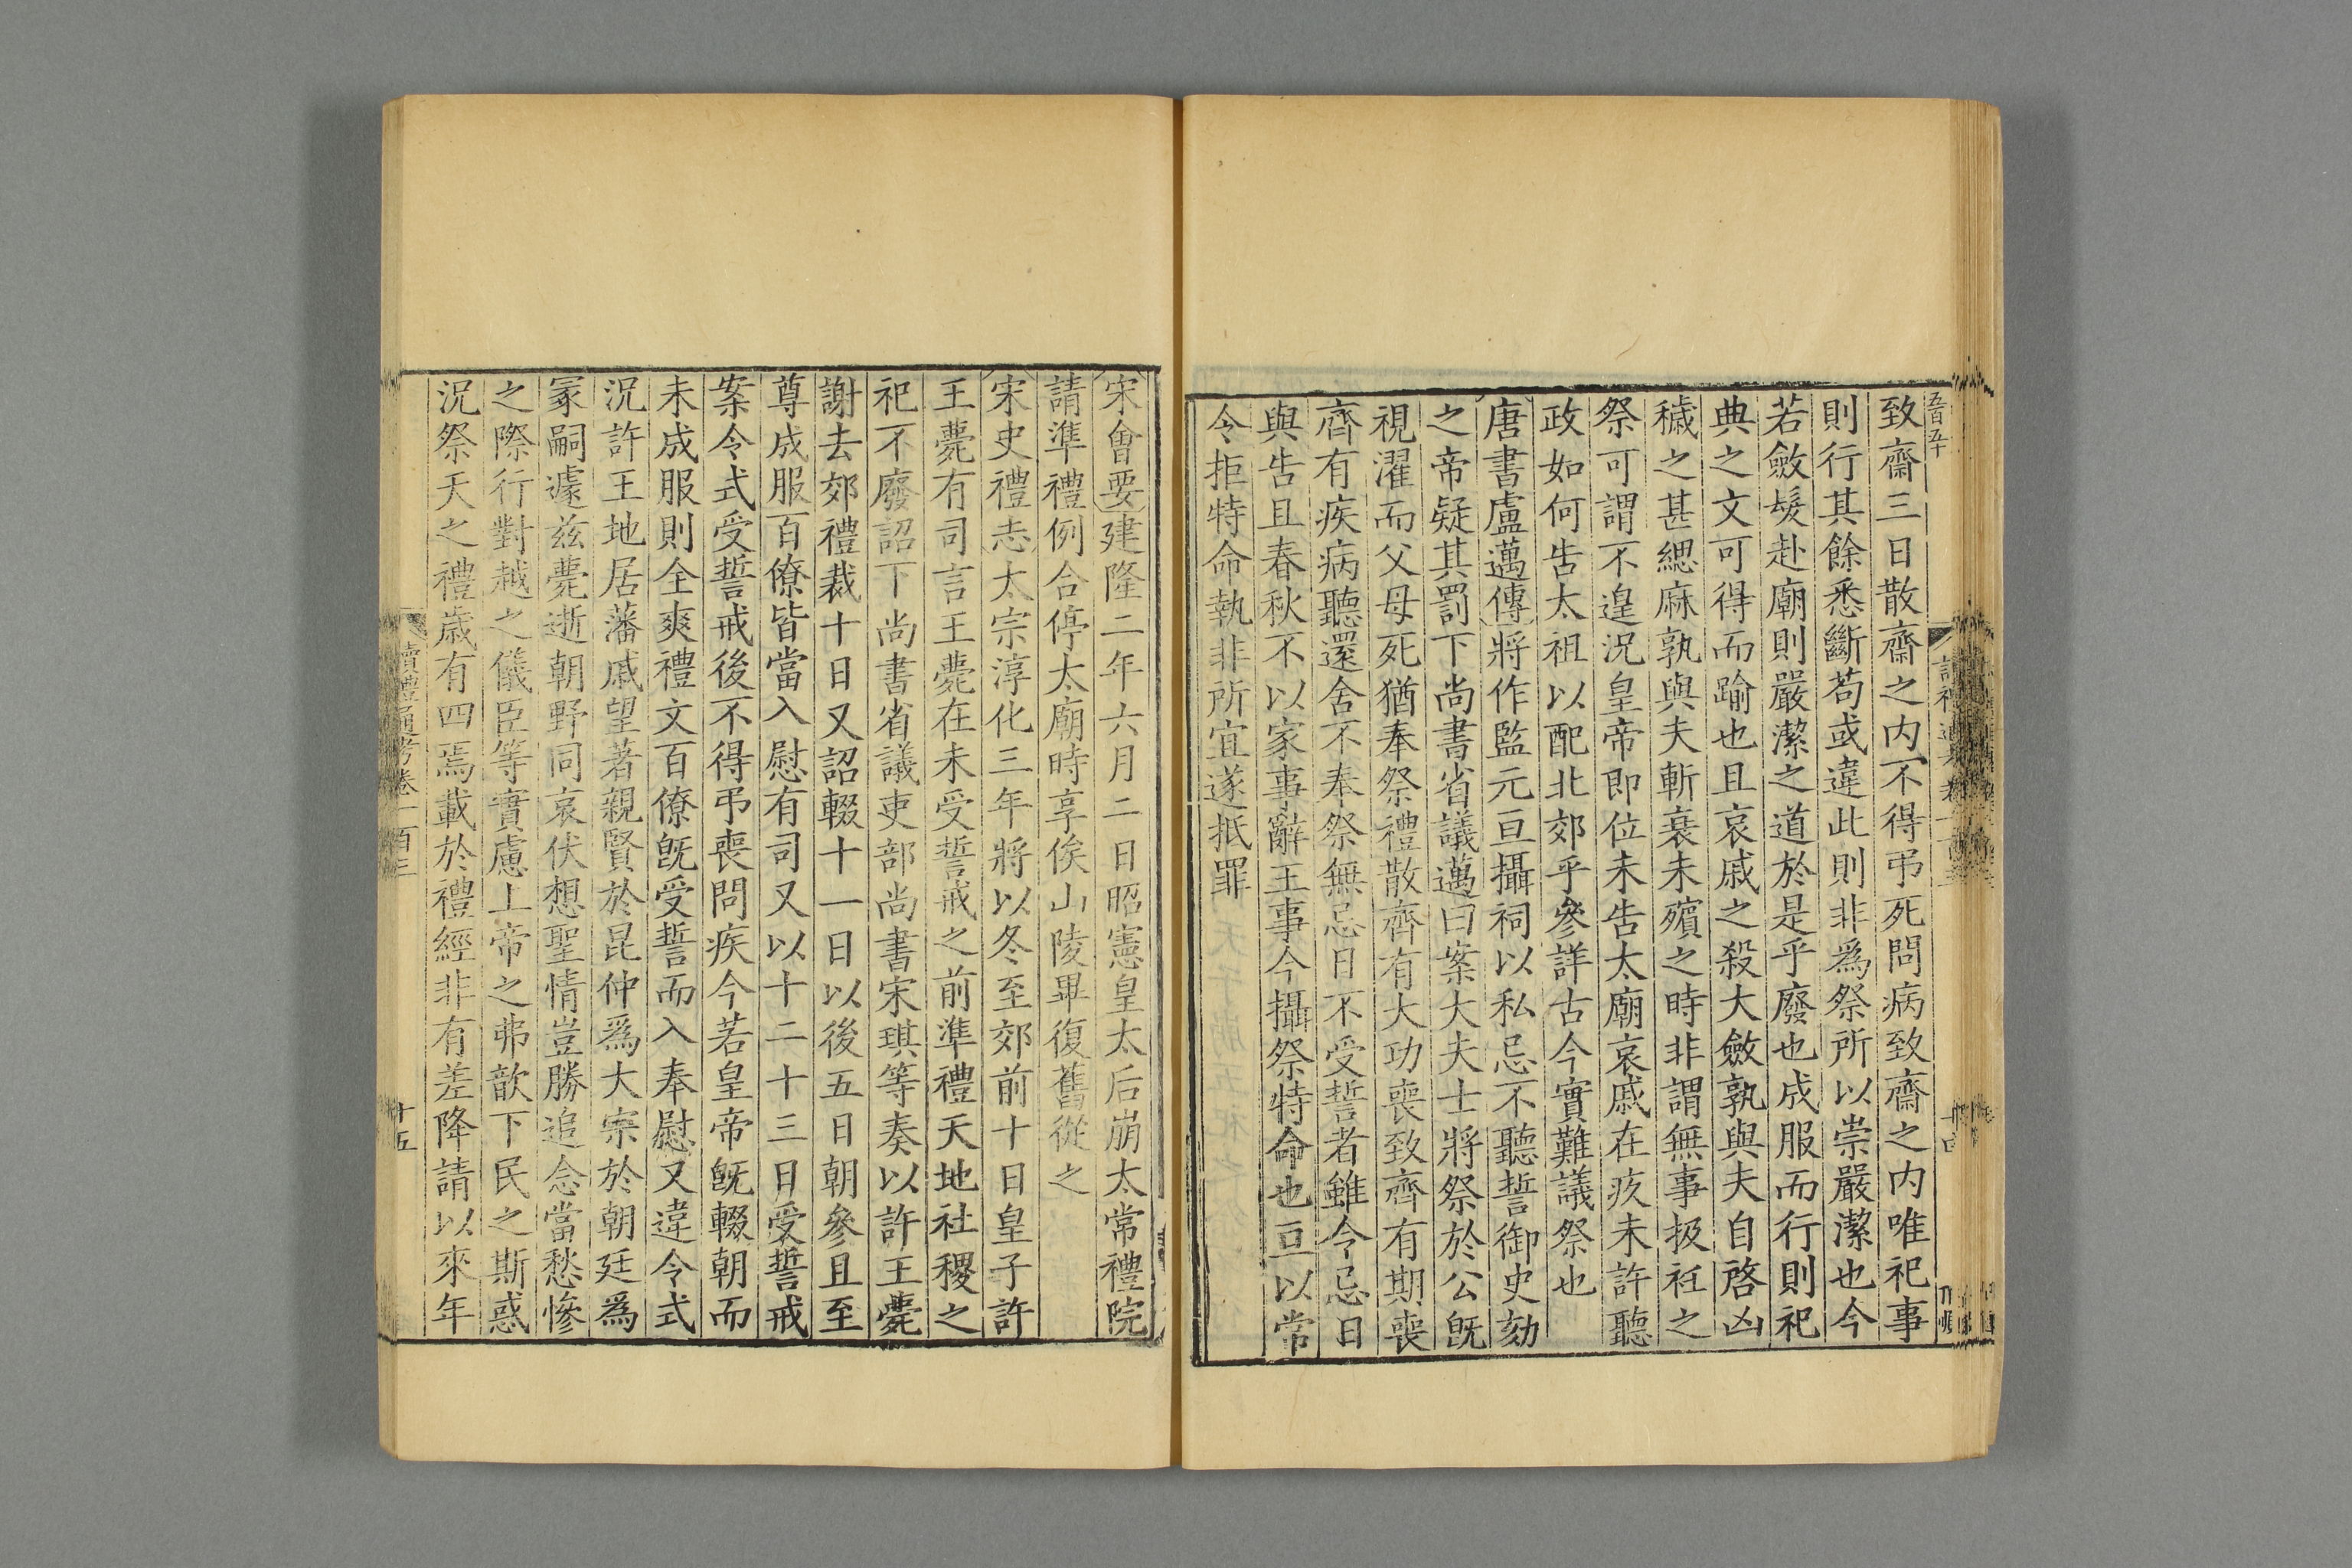 五百五十
致齋三日散齋之内不得弔死問病致齋之内唯祀事
則行其餘悉斷苟或違此則非爲祭所以崇嚴潔也今
若斂髮赴廟則嚴潔之道於是乎廢也成服而行則祀
典之文可得而踰也且哀戚之殺大斂孰與夫自啓凶
穢之甚緦麻孰與夫斬衰未殯之時非謂無事扱衽之
祭可謂不遑況皇帝即位未告太廟哀戚在疚未許聽
政如何告太祖以配北郊乎參詳古今實難議祭也
唐書盧邁傳將作監元亘攝祠以私忌不聽誓御史劾
之帝疑其罰下尚書省議邁曰案大夫士將祭於公旣
視濯而父母死猶奉祭禮散齊有大功喪致齊有期喪
齊有疾病聽還舍不奉祭無忌日不受誓者雖令忌日
與告且春秋不以家事辭王事今攝祭特命也亘以常
令拒特命執非所宜遂抵罪
宋會要建隆二年六月二日昭憲皇太后崩太常禮院
請準禮例合停太廟時享俟山陵畢復舊從之
宋史禮志太宗淳化三年將以冬至郊前十日皇子許
王薨有司言王薨在未受誓戒之前準禮天地社稷之
祀不廢詔下尚書省議吏部尚書宋琪等奏以許王薨
謝去郊禮裁十日又詔輟十一日以後五日朝參且至
尊成服百僚皆當入慰有司又以十二十三日受誓戒
案令式受誓戒後不得弔喪問疾今若皇帝旣輟朝而
未成服則全爽禮文百僚旣受誓而入奉慰又違令式
況許王地居藩戚望著親賢於昆仲爲大宗於朝廷爲
冢嗣遽茲薨逝朝野同哀伏想聖情豈勝追念當愁慘
之際行對越之儀臣等實慮上帝之弗歆下民之斯惑
況祭天之禮歲有四焉載於禮經非有差降請以來年
讀禮通考卷一百三
十五